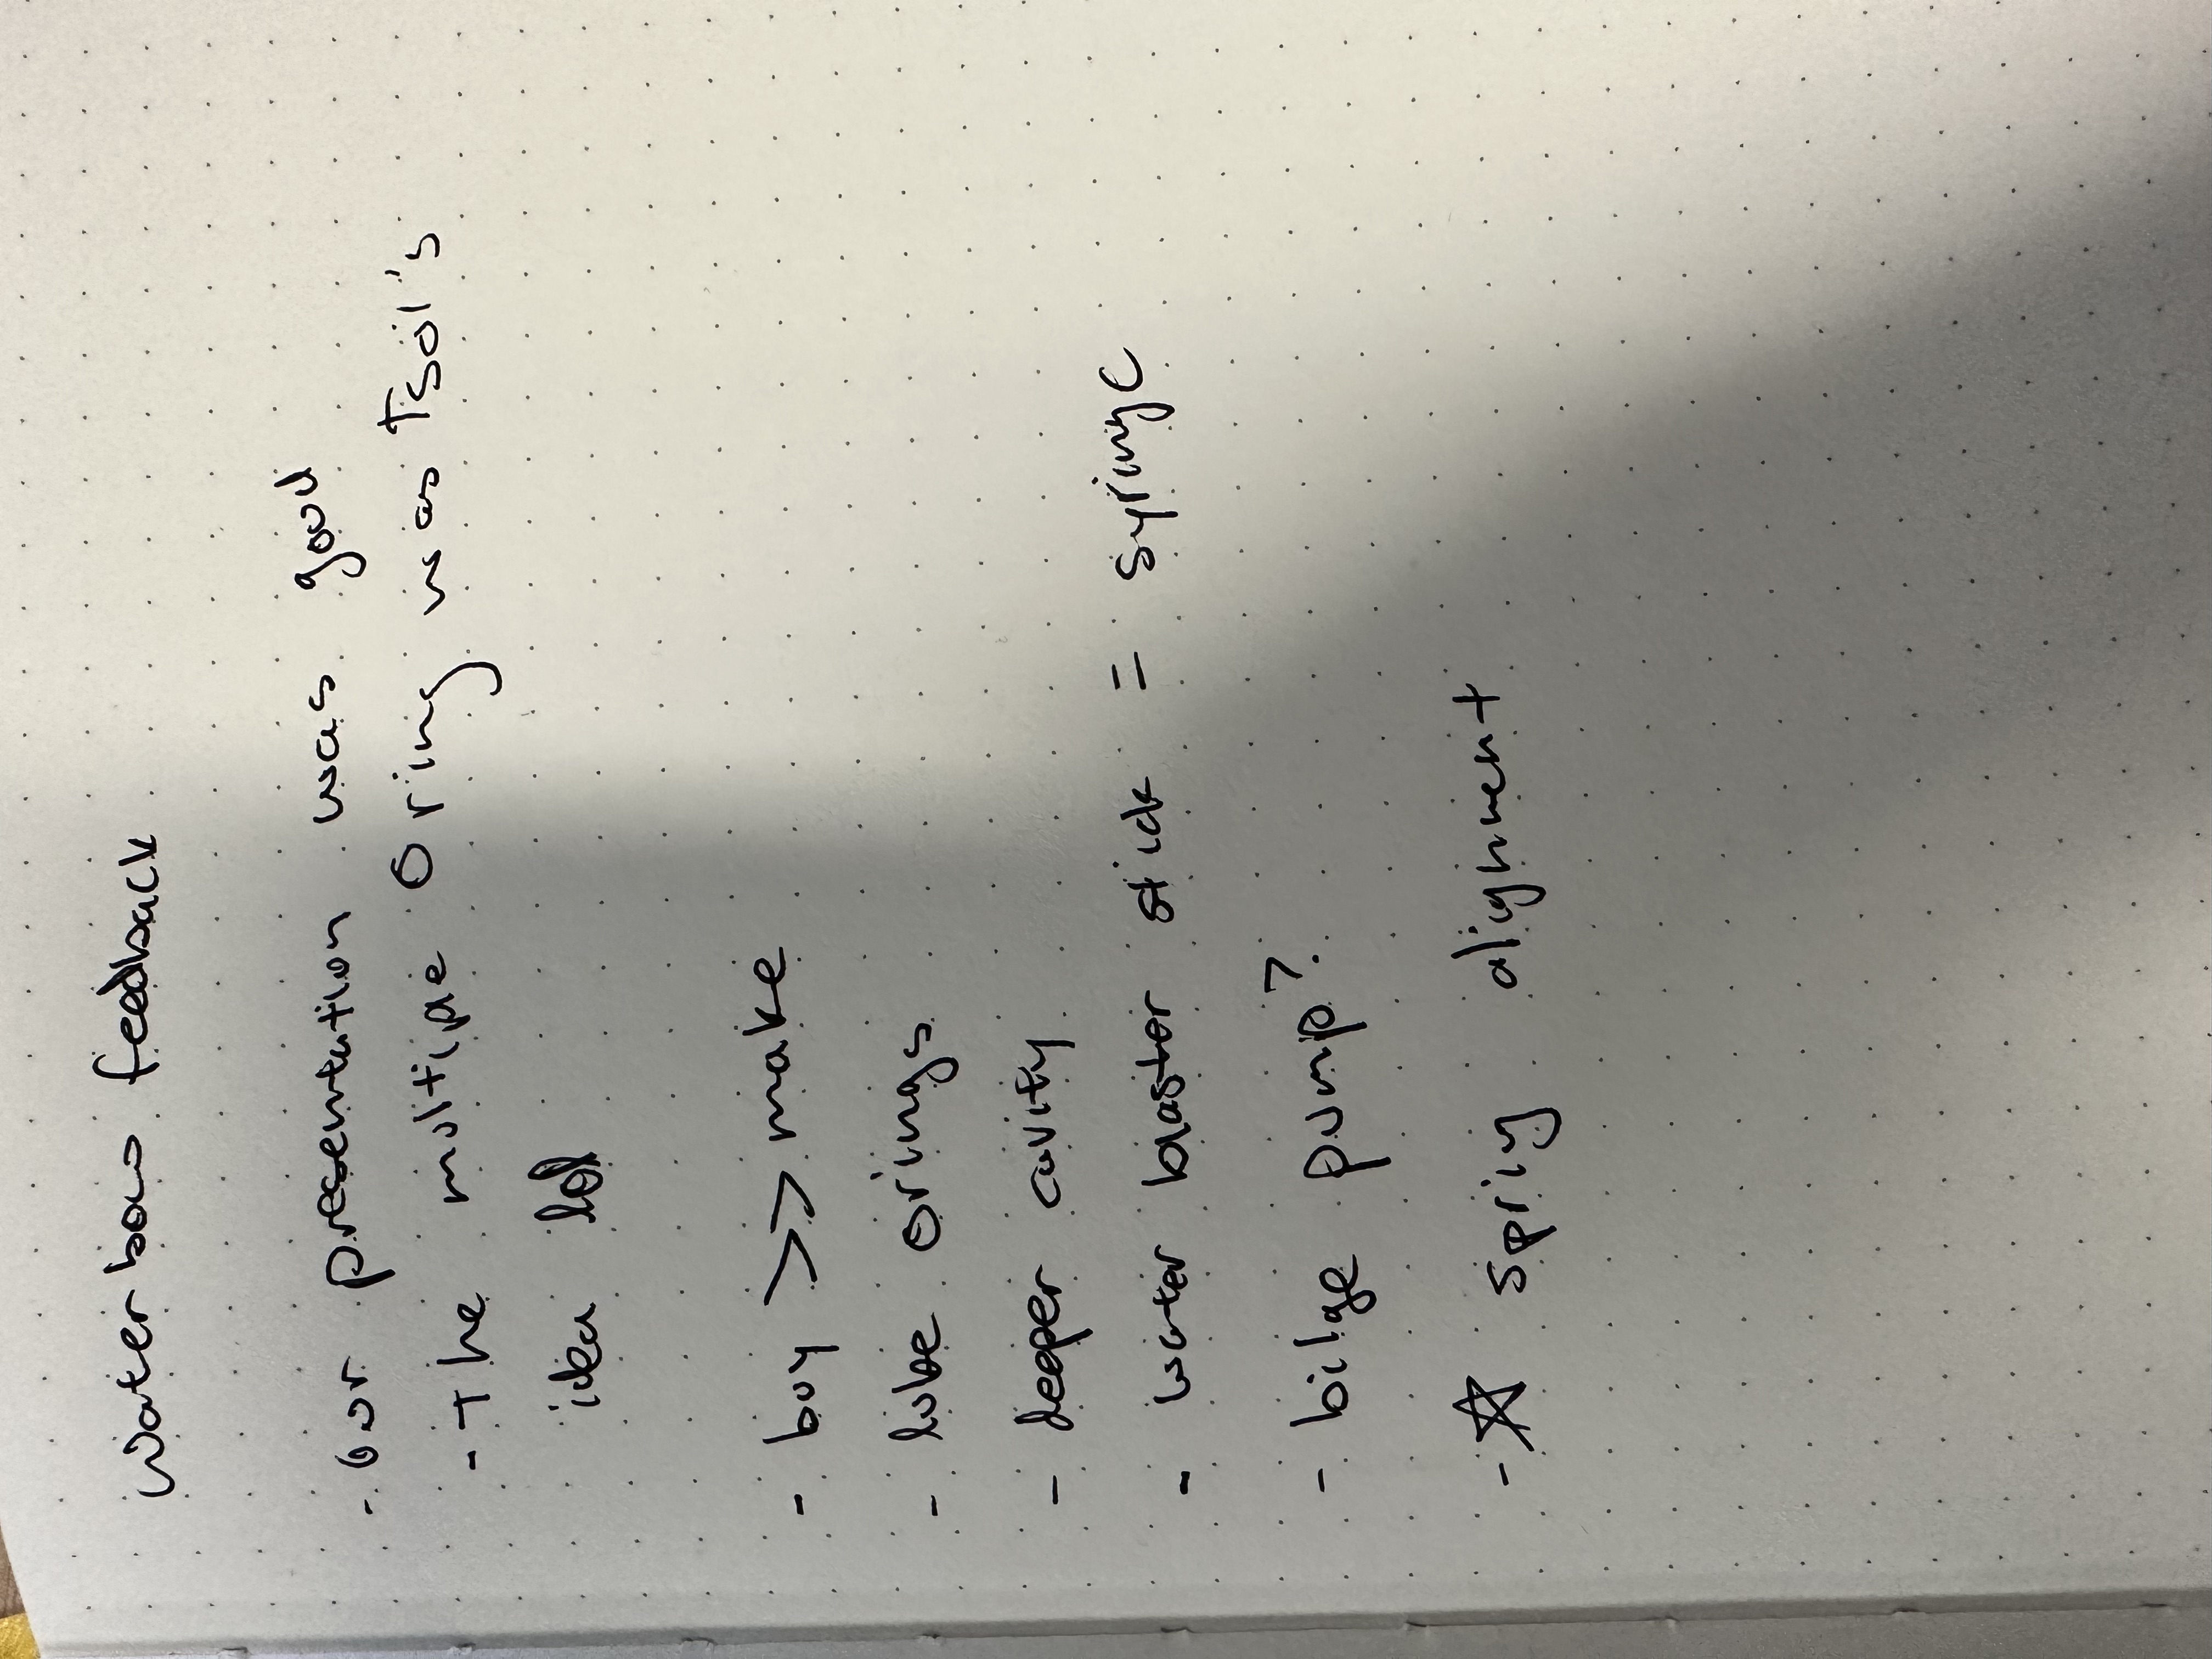 Water bow feedback
- our presentation was good
- The multiple O ring was Tsol's
idea lol
- buy >> make
- lube orings
- deeper cavity
- water blaster stick = syringe
- bilge pump?
- ☆ spring alignment